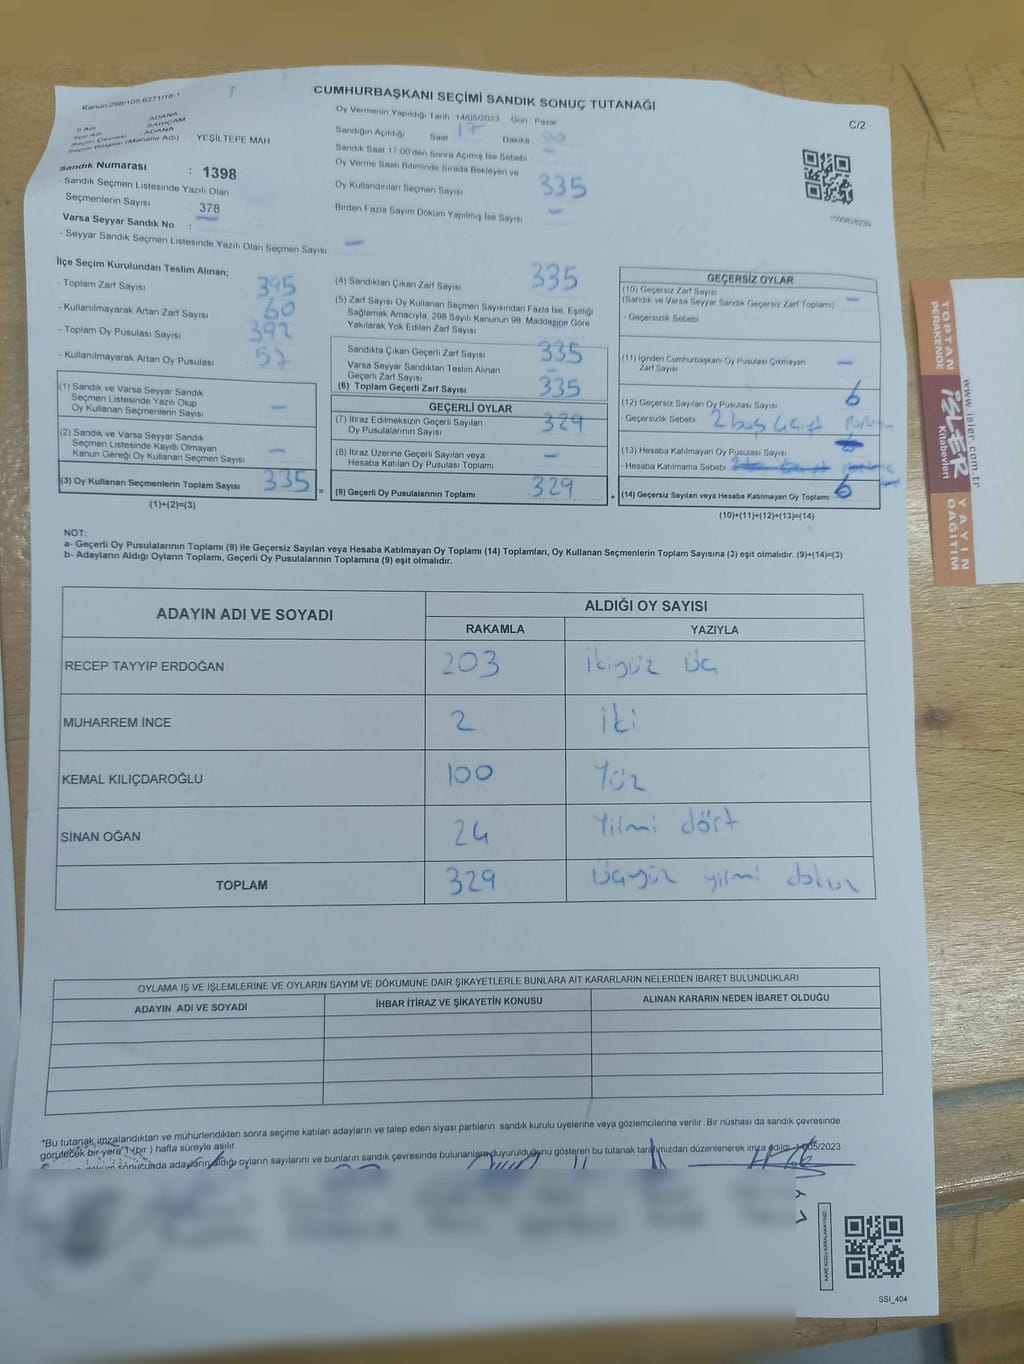 Kanun:298/105 6271/18-1
CUMHURBAŞKANI SEÇİMİ SANDIK SONUÇ TUTANAĞI
C/2
İl Adı : ADANA
İlçe Adı : SARIÇAM
Seçim Çevresi : ADANA
Seçim Bölgesi (Mahalle Adı) YEŞİLTEPE MAH
Sandık Numarası : 1398
- Sandık Seçmen Listesinde Yazılı Olan
Seçmenlerin Sayısı : 378
Varsa Seyyar Sandık No : -
- Seyyar Sandık Seçmen Listesinde Yazılı Olan Seçmen Sayısı -
Oy Vermenin Yapıldığı Tarih 14/05/2023 Gün : Pazar
Sandığın Açıldığı Saat 17 Dakika 00
Sandık Saat 17:00'den Sonra Açımış İse Sebebi -
Oy Verme Saati Bitiminde Sırada Bekleyen ve
Oy Kullandırılan Seçmen Sayısı 335
Birden Fazla Sayım Döküm Yapılmış İse Sayısı -
İlçe Seçim Kurulundan Teslim Alınan;
- Toplam Zarf Sayısı 395
- Kullanılmayarak Artan Zarf Sayısı 60
- Toplam Oy Pusulası Sayısı 392
- Kullanılmayarak Artan Oy Pusulası 57
(1) Sandık ve Varsa Seyyar Sandık
Seçmen Listesinde Yazılı Olup
Oy Kullanan Seçmenlerin Sayısı -
(2) Sandık ve Varsa Seyyar Sandık
Seçmen Listesinde Kayıtlı Olmayan
Kanun Gereği Oy Kullanan Seçmen Sayısı -
(3) Oy Kullanan Seçmenlerin Toplam Sayısı 335 =
(1)+(2)=(3)
(4) Sandıktan Çıkan Zarf Sayısı 335
(5) Zarf Sayısı Oy Kullanan Seçmen Sayısından Fazla İse, Eşitliği
Sağlamak Amacıyla, 298 Sayılı Kanunun 98. Maddesine Göre
Yakılarak Yok Edilen Zarf Sayısı -
Sandıkta Çıkan Geçerli Zarf Sayısı 335
Varsa Seyyar Sandıktan Teslim Alınan
Geçerli Zarf Sayısı -
(6) Toplam Geçerli Zarf Sayısı 335
GEÇERLİ OYLAR
(7) İtiraz Edilmeksizin Geçerli Sayılan
Oy Pusulalarının Sayısı 329
(8) İtiraz Üzerine Geçerli Sayılan veya
Hesaba Katılan Oy Pusulası Toplamı -
(9) Geçerli Oy Pusulalarının Toplamı 329 +
GEÇERSİZ OYLAR
(10) Geçersiz Zarf Sayısı
(Sandık ve Varsa Seyyar Sandık Geçersiz Zarf Toplamı) -
- Geçersizlik Sebebi
(11) İçinden Cumhurbaşkanı Oy Pusulası Çıkmayan
Zarf Sayısı -
(12) Geçersiz Sayılan Oy Pusulası Sayısı 6
- Geçersizlik Sebebi 2 boş
(13) Hesaba Katılmayan Oy Pusulası Sayısı
- Hesaba Katılmama Sebebi
(14) Geçersiz Sayılan veya Hesaba Katılmayan Oy Toplamı 6
(10)+(11)+(12)+(13)=(14)
NOT:
a- Geçerli Oy Pusulalarının Toplamı (9) ile Geçersiz Sayılan veya Hesaba Katılmayan Oy Toplamı (14) Toplamları, Oy Kullanan Seçmenlerin Toplam Sayısına (3) eşit olmalıdır. (9)+(14)=(3)
b- Adayların Aldığı Oyların Toplamı, Geçerli Oy Pusulalarının Toplamına (9) eşit olmalıdır.
ADAYIN ADI VE SOYADI ALDIĞI OY SAYISI
RAKAMLA YAZIYLA
RECEP TAYYİP ERDOĞAN 203 İkiyüz Üç
MUHARREM İNCE 2 İki
KEMAL KILIÇDAROĞLU 100 Yüz
SİNAN OĞAN 24 Yirmi dört
TOPLAM 329 Üçyüz yirmi dokuz
OYLAMA İŞ VE İŞLEMLERİNE VE OYLARIN SAYIM VE DÖKÜMÜNE DAİR ŞİKAYETLERLE BUNLARA AİT KARARLARIN NELERDEN İBARET BULUNDUKLARI
ADAYIN ADI VE SOYADI İHBAR İTİRAZ VE ŞİKAYETİN KONUSU ALINAN KARARIN NEDEN İBARET OLDUĞU
"Bu tutanak imzalandıktan ve mühürlendikten sonra seçime katılan adayların ve talep eden siyasi partilerin sandık kurulu üyelerine veya gözlemcilerine verilir. Bir nüshası da sandık çevresinde
görülecek bir yere 1 (bir) hafta süreyle asılır.
sonucunda adayların aldığı oyların sayılarını ve bunların sandık çevresinde bulunanlara duyurulduğunu gösteren bu tutanak tarafımızdan düzenlenerek imza edildi. 14/05/2023
SSI_404
TOPTAN
PERAKENDE
İŞLER
Kitabevleri
www.isler.com.tr
YAYIN
DAĞITIM